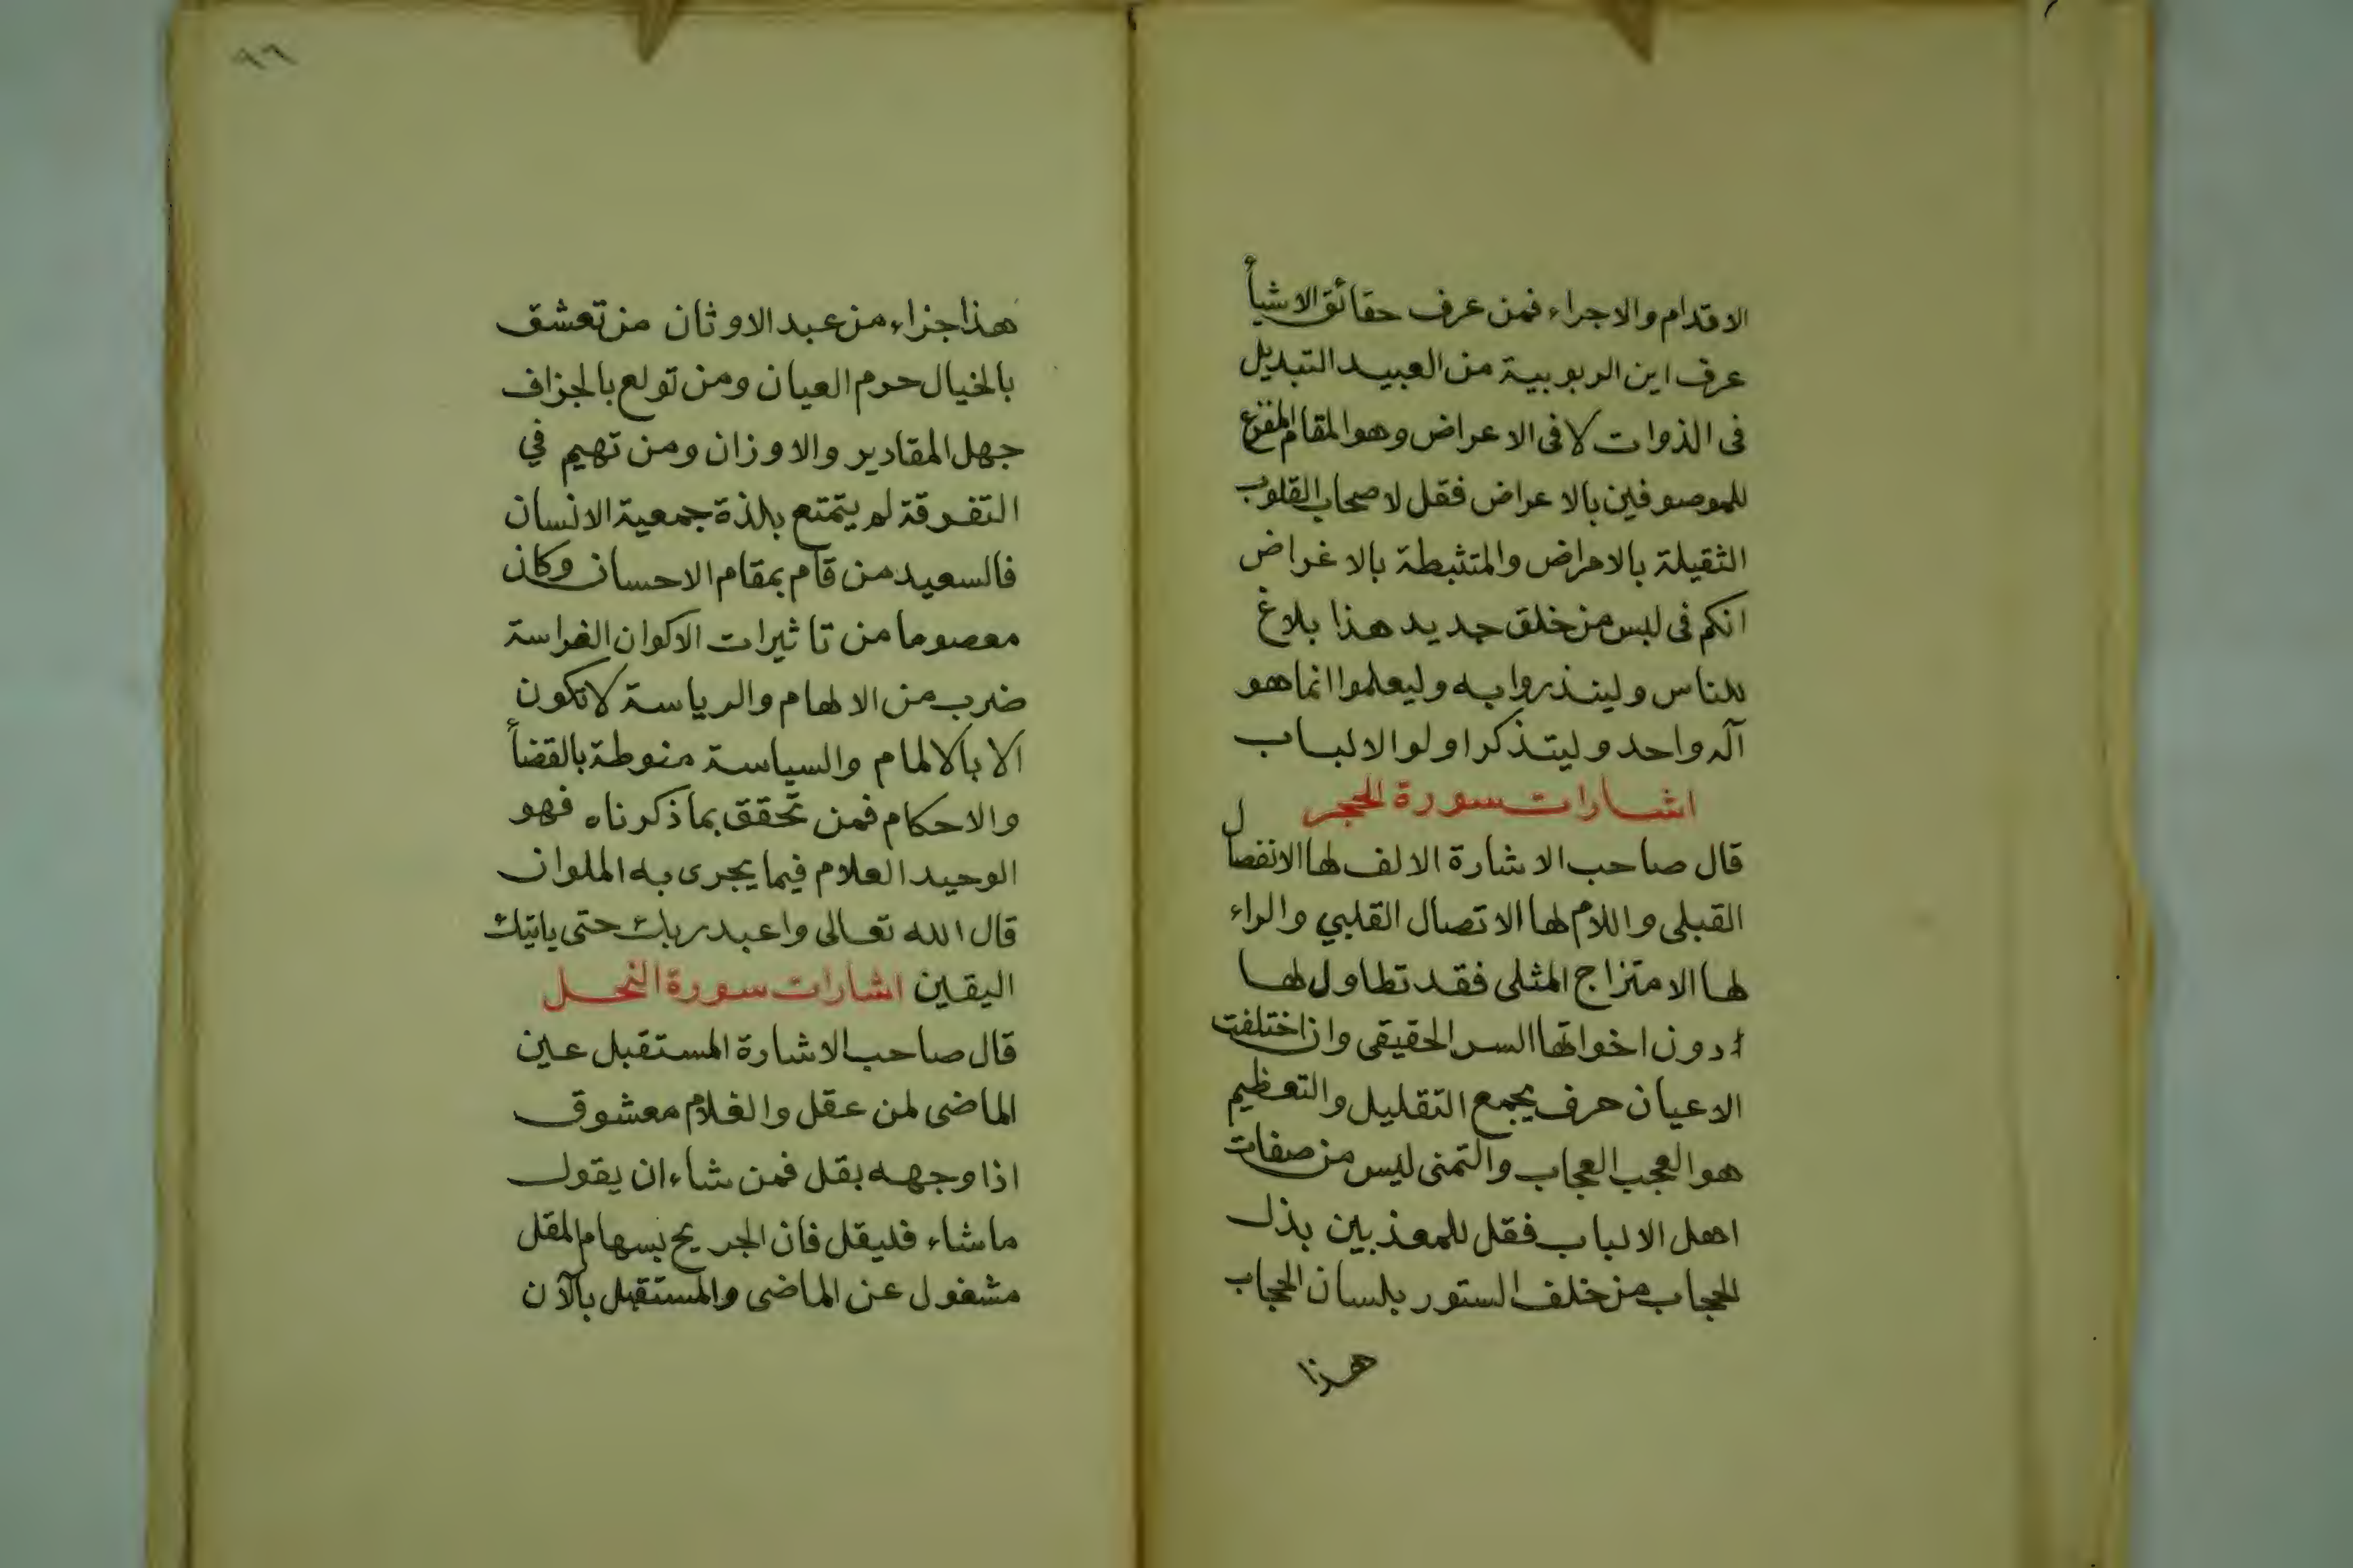 الاقدام والاجراء فمن عرف حقائق الاشيأ
عرف اين الربوبية من العبيد التبديل
فى الذوات لا فى الاعراض وهو المقام المفزع
للموصوفين بالاعراض فقل لاصحاب القلوب
الثقيلة بالامراض والمتثبطة بالاغراض
انكم فى لبس من خلق جديد هذا بلاغ
للناس ولينذروا به وليعلموا انما هو
آله واحد وليتذكر اولوا الالباب
اشارات سورة الحجر
قال صاحب الاشارة الالف لها الانفصال
القبلى واللام لها الاتصال القلبي والراء
لها الامتزاج المثلى فقد تطاول لها
دون اخواتها السر الحقيقى وان اختلفت
الاعيان حرف يجمع التقليل والتعظيم
هو العجب العجاب والتمنى ليس من صفات
اهل الالباب فقل للمعذبين بذل
الحجاب من خلف الستور بلسان الحجاب
هذا
٩٦
هذا جزاء من عبد الاوثان من تعشق
بالخيال حرم العيان ومن تولع بالجزاف
جهل المقادير والاوزان ومن تهيم في
التفرقة لم يتمتع بلذة جمعية الانسان
فالسعيد من قام بمقام الاحسان وكان
معصوما من تاثيرات الاكوان الفراسة
ضرب من الالهام والرياسة لا تكون
الا بالالمام والسياسة منوطة بالقضأ
والاحكام فمن تحقق بما ذكرناه فهو
الوحيد العلام فيما يجرى به الملوان
قال الله تعالى واعبد ربك حتى ياتيك
اليقين اشارات سورة النحل
قال صاحب الاشارة المستقبل عين
الماضى لمن عقل والغلام معشوق
اذا وجهه بقل فمن شاء ان يقول
ما شاء فليقل فان الجريح بسهام المقل
مشغول عن الماضى والمستقبل بالآن